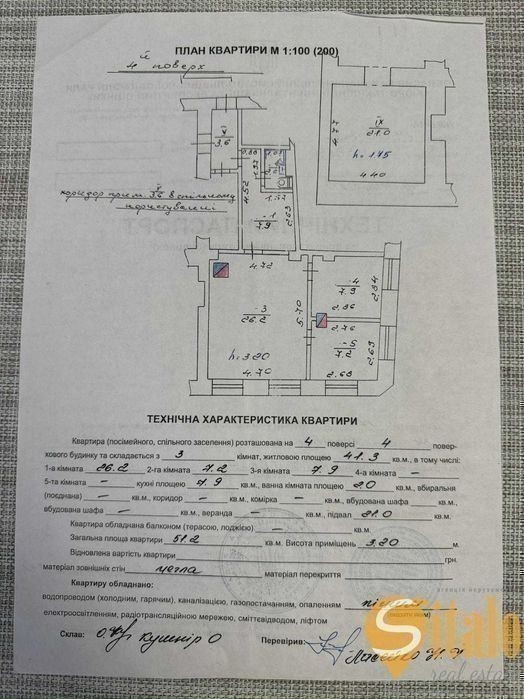 ПЛАН КВАРТИРИ М 1:100 (200)
4й поверх
V
3,6
IX
21.0
h=1.75
4.77
4.40
коридор прим. V 3.6 в спільному
користуванні
0.88
1.92
4.52
1.52
-1
7.9
2.63
4.72
-3
26.2
h=3.20
4.70
5.70
-4
7.9
2.84
2.86
2.76
-5
7.2
2.63
2.68
ТЕХНІЧНА ХАРАКТЕРИСТИКА КВАРТИРИ
Квартира (посімейного, спільного заселення) розташована на 4 поверсі 4 повер-
хового будинку та складається з 3 кімнат, житловою площею 41.3 кв.м., в тому числі:
1-а кімната 26.2 2-га кімната 7.2 3-я кімната 7.9 4-а кімната –
5-та кімната – кухні площею 7.9 кв.м., ванна кімната площею 2.0 кв.м., вбиральня
(поєднана) – кв.м., коридор – кв.м., комірка – кв.м., вбудована шафа
вбудована шафа – кв.м., веранда – кв.м., підвал 21.0 кв.м.
Квартира обладнана балконом (терасою, лоджією) – кв.м.
Загальна площа квартири 51.2 кв.м. Висота приміщень 3.20 м.
Відновлена вартість квартири грн.
матеріал зовнішніх стін цегла матеріал перекриття
Квартиру обладнано:
водопроводом (холодним, гарячим), каналізацією, газопостачанням, опаленням
електроосвітленням, радіотрансляційною мережею, сміттєвідводом, ліфтом
Склав: Кушнір О Перевірив:
агенція нерухомості
Sitalo
real estate